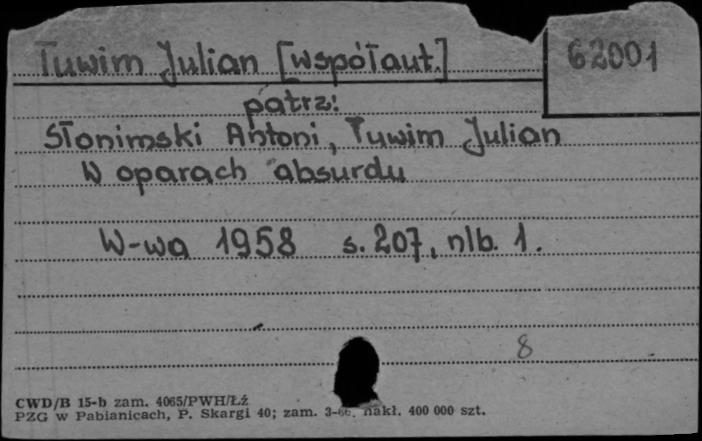 Tuwim Julian [współaut.]
62001
patrz:
Słonimski Antoni, Tuwim Julian
W oparach absurdu
W-wa 1958 s. 207, nlb. 1.
8
CWD/B 15-b zam. 4065/PWH/Łź
PZG w Pabianicach, P. Skargi 40; zam. 3-66. nakł. 400 000 szt.